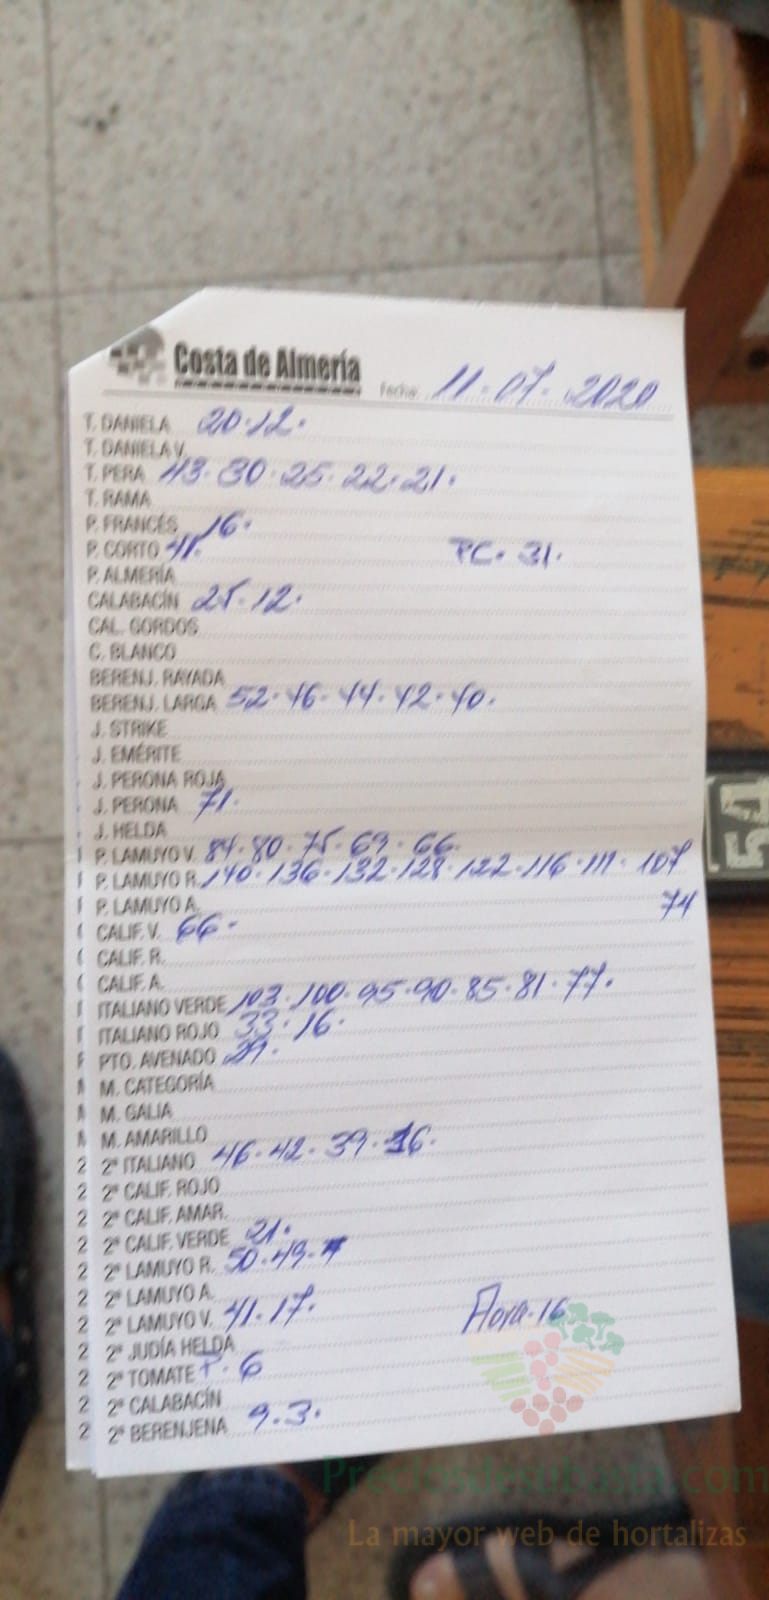 Costa de Almería
fecha 11-07-2020
T. DANIELA 20.12.
T. DANIELA V.
T. PERA 43.30.25.22.21.
T. RAMA
P. FRANCÉS 16.
P. CORTO 41. PC. 31.
P. ALMERÍA
CALABACÍN 25.12.
CAL. GORDOS
C. BLANCO
BERENJ. RAYADA
BERENJ. LARGA 52.46.44.42.40.
J. STRIKE
J. EMÉRITE
J. PERONA ROJA
J. PERONA 71.
J. HELDA
P. LAMUYO V. 84.80.75.69.66.
P. LAMUYO R. 140.136.132.128.122.116.111.107
P. LAMUYO A. 74
CALIF. V. 66.
CALIF. R.
CALIF. A.
ITALIANO VERDE 103.100.95.90.85.81.77.
ITALIANO ROJO 33.16.
PTO. AVENADO 29.
M. CATEGORÍA
M. GALIA
M. AMARILLO
2ª ITALIANO 46.42.39.36.
2ª CALIF. ROJO
2ª CALIF. AMAR.
2ª CALIF. VERDE 21.
2ª LAMUYO R. 50.49.
2ª LAMUYO A.
2ª LAMUYO V. 41.17. Flora.16
2ª JUDÍA HELDA
2ª TOMATE P. 6
2ª CALABACÍN
2ª BERENJENA 9.3.
54
Preciosdesubasta.com
La mayor web de hortalizas